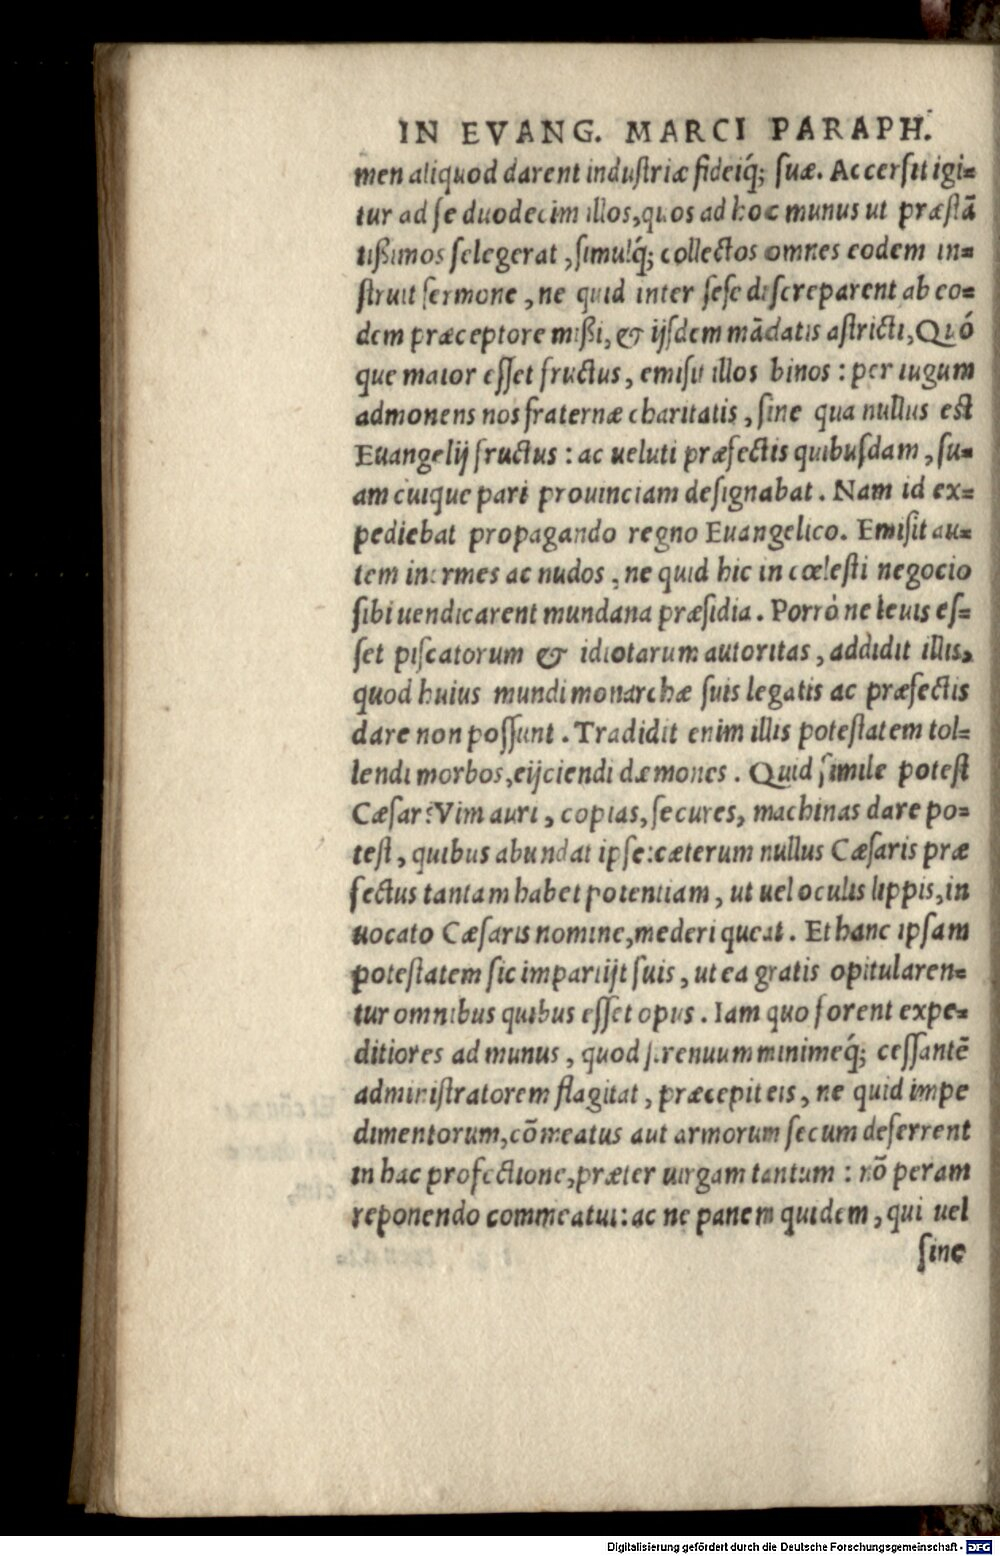 IN EVANG. MARCI PARAPH.
men aliquod darent industriæ fideiq́; suæ. Accersit igi=
tur ad se duodecim illos, quos ad hoc munus ut præstā
tißimos selegerat, simulq́; collectos omnes eodem in=
struit sermone, ne quid inter sese discreparent ab eo=
dem præceptore mißi, & ijsdem mādatis astricti, Quó
que maior esset fructus, emisit illos binos: per iugum
admonens nos fraternæ charitatis, sine qua nullus est
Euangelij fructus: ac ueluti præfectis quibusdam, su=
am cuique pari prouinciam designabat. Nam id ex=
pediebat propagando regno Euangelico. Emisit au=
tem inermes ac nudos, ne quid hic in cœlesti negocio
sibi uendicarent mundana præsidia. Porrò ne leuis es=
set piscatorum & idiotarum autoritas, addidit illis,
quod huius mundi monarchæ suis legatis ac præfectis
dare non possunt. Tradidit enim illis potestatem tol=
lendi morbos, eijciendi dæmones. Quid simile potest
Cæsar? Vim auri, copias, secures, machinas dare po=
test, quibus abundat ipse: cæterum nullus Cæsaris præ
fectus tantam habet potentiam, ut uel oculis lippis, in
uocato Cæsaris nomine, mederi queat. Et hanc ipsam
potestatem sic impartijt suis, ut ea gratis opitularen=
tur omnibus quibus esset opus. Iam quo forent expe=
ditiores ad munus, quod strenuum minimeq́; cessantē
administratorem flagitat, præcepit eis, ne quid impe
dimentorum, cōmeatus aut armorum secum deferrent
in hac profectione, præter uirgam tantum: nō peram
reponendo commeatui: ac ne panem quidem, qui uel
sine
Digitalisierung gefördert durch die Deutsche Forschungsgemeinschaft - DFG